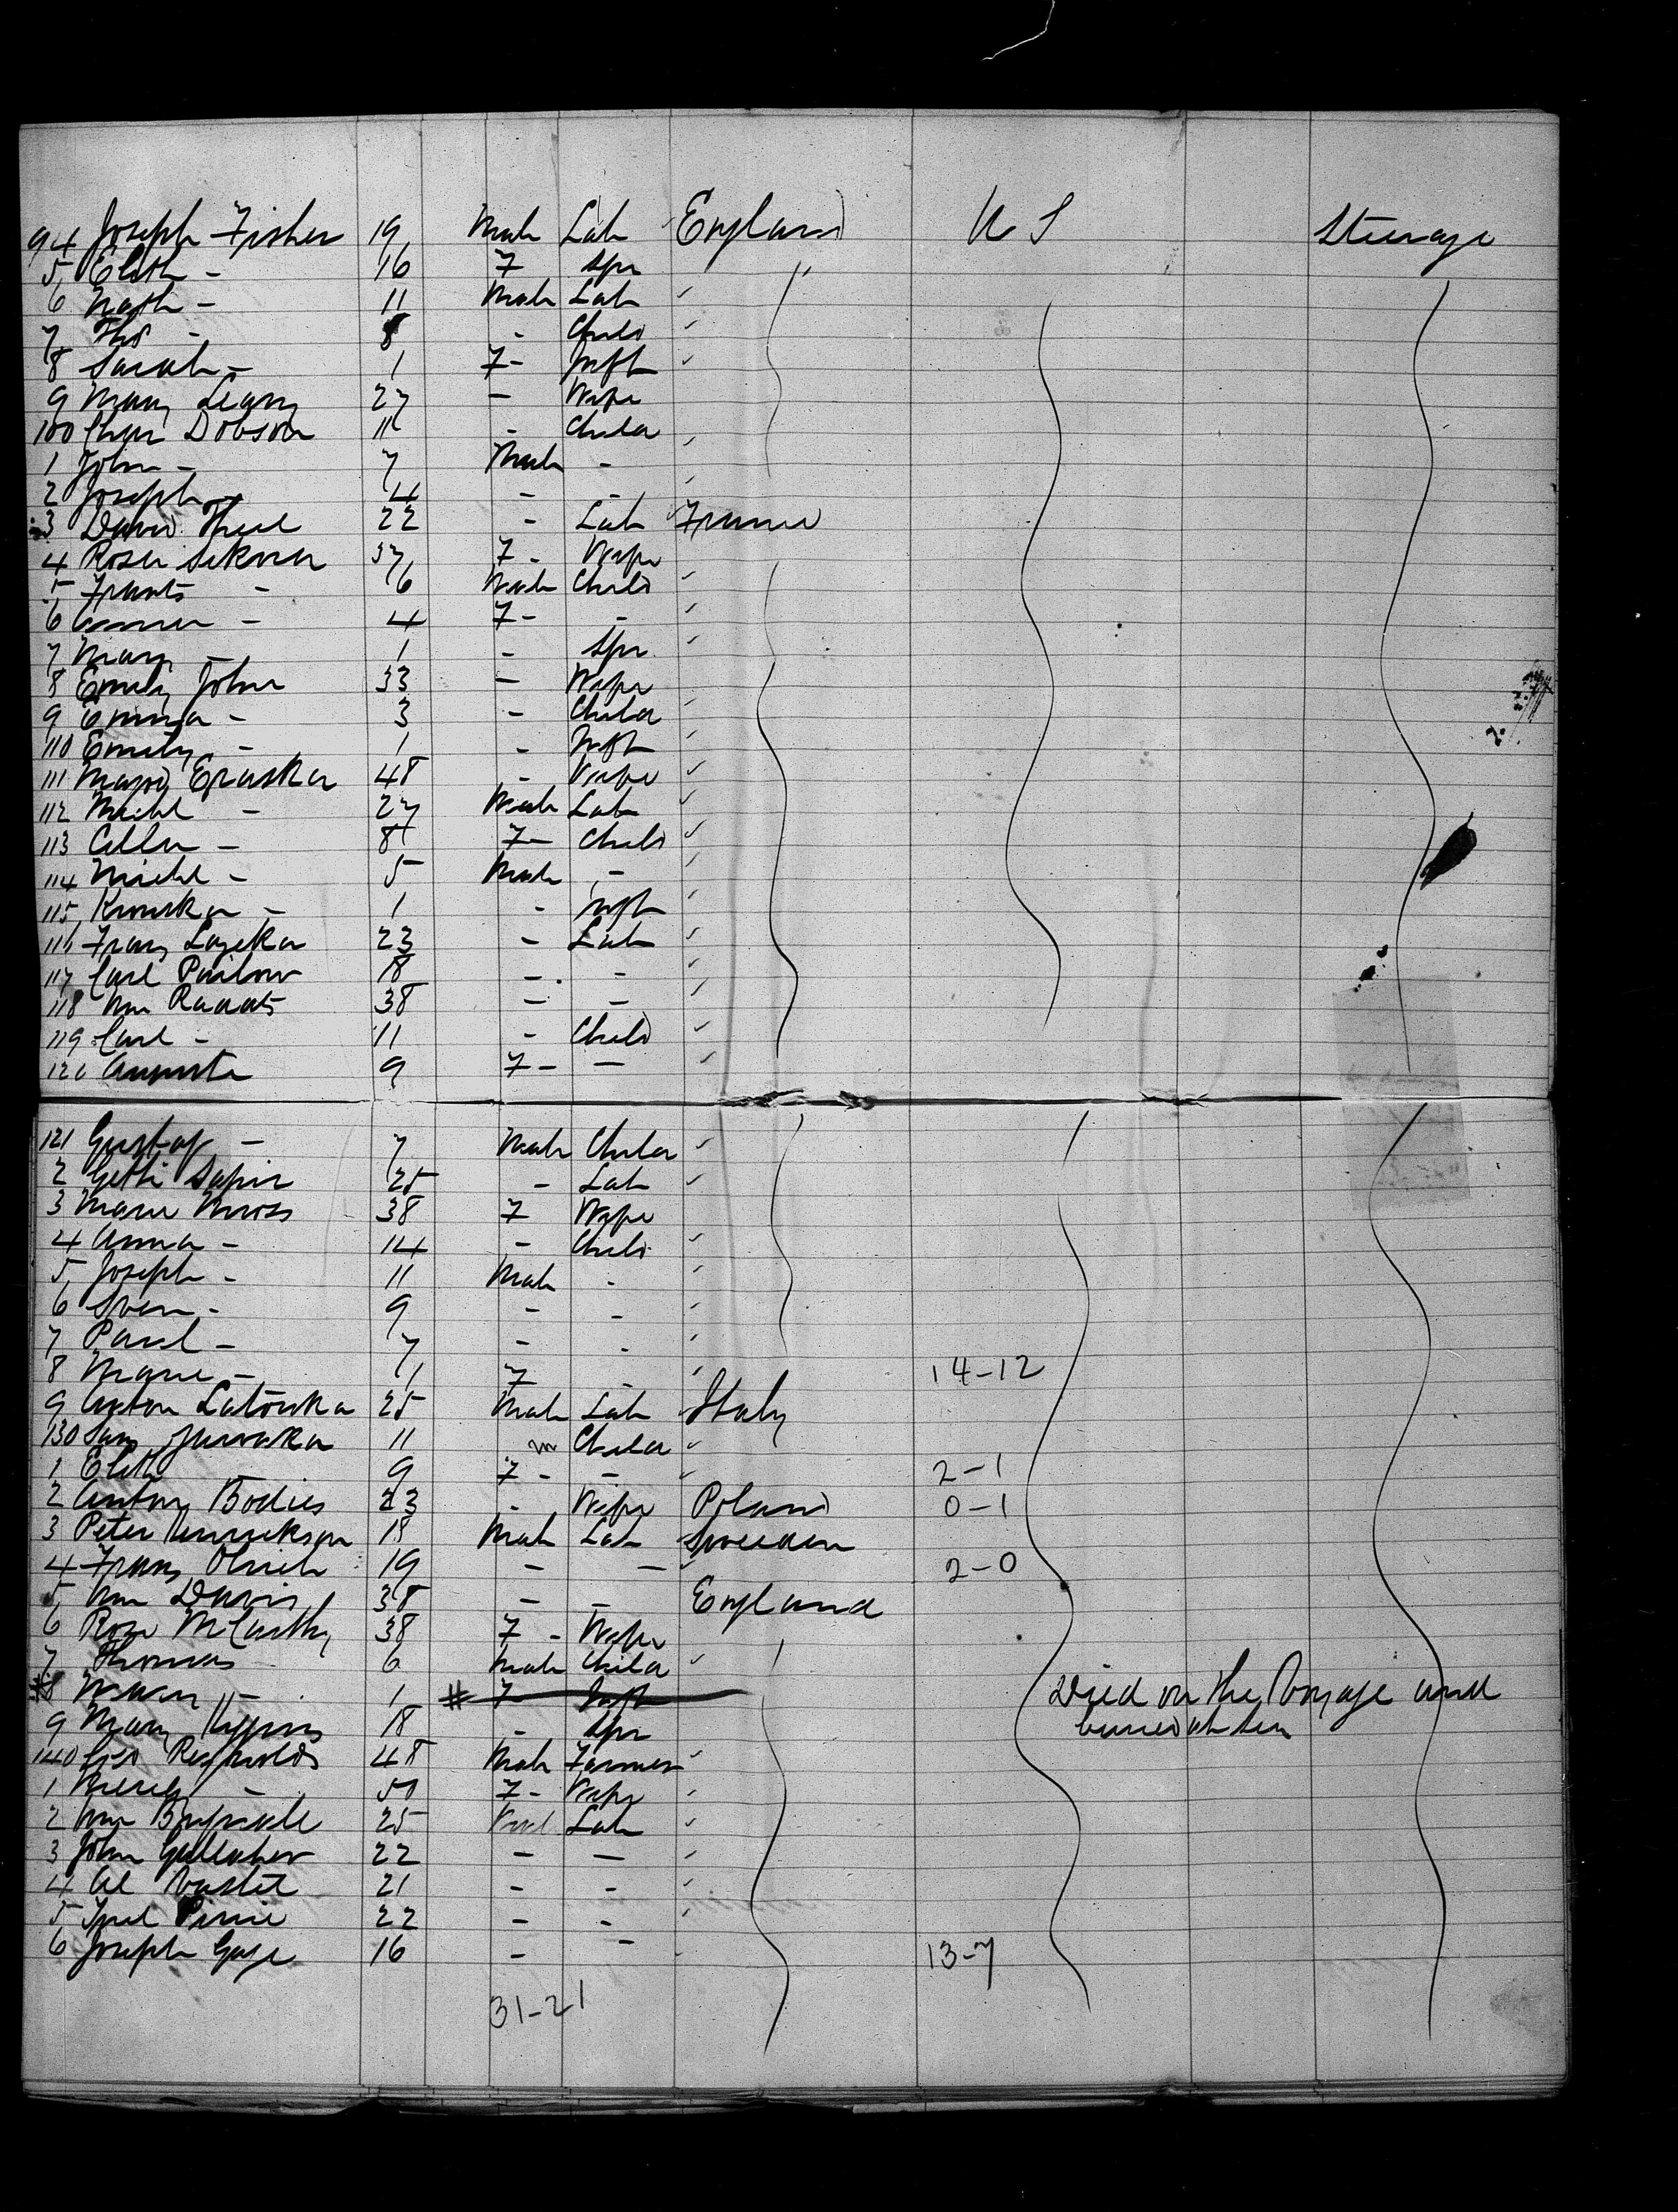 94 Joseph Fisher 19 Male Lab England U S Steerage
5 Elizth - 16 F Spr
6 - 11 Male Lab
7 Ths - 8 - Child
8 Sarah - 1 F - Inft
9 Mary Leary 27 - Wife
100 Chas Dobson 11 - Child
1 John - 7 Male -
2 Joseph - 4 - -
3 David Theil 22 - Lab France
4 Rosa 37 F - Wife
5 Frants - 6 Male Child
6 - 4 F - -
7 Mary - 1 - Spr
8 Emily John 33 - Wife
9 Emma - 3 - Child
110 Emily - 1 - Inft
111 48 - Wife
112 Michl - 27 Male Lab
113 Cilla - 8 F - Child
114 Michl - 5 Male -
115 - 1 - Inft
116 Franz 23 - Lab
117 Carl 18 - -
118 Wm Raddats 38 - -
119 Carl - 11 - Child
120 Augusta 9 F - -
121 Gustaf - 7 Male Child
2 25 - Lab
3 Marie Mross 38 F Wife
4 Anna - 14 - Child
5 Joseph - 11 Male -
6 Sven - 9 - -
7 Paul - 7 - -
8 Marie - 1 F - 14-12
9 Anton Latouka 25 Male Lab Italy
130 11 m Child
1 Elith 9 F - - 2-1
2 Antony Bodies 23 - Wife Poland 0-1
3 Peter 18 Male Lab Sweeden
4 Frans 19 - - 2-0
5 Wm Davis 38 - - England
6 Rose McCarthy 38 F - Wife
7 Thomas 6 Male Child
#8 - 1 # F Inft Died on the Voyage and
buried at Sea
9 Mary 18 - Spr
140 Geo Reynolds 48 Male Farmer
1 - 50 F - Wife
2 Wm 25 Lab
3 John Gallaher 22 - -
4 21 - -
5 Pirrie 22 - -
6 Joseph Gage 16 - - 13-7
31-21